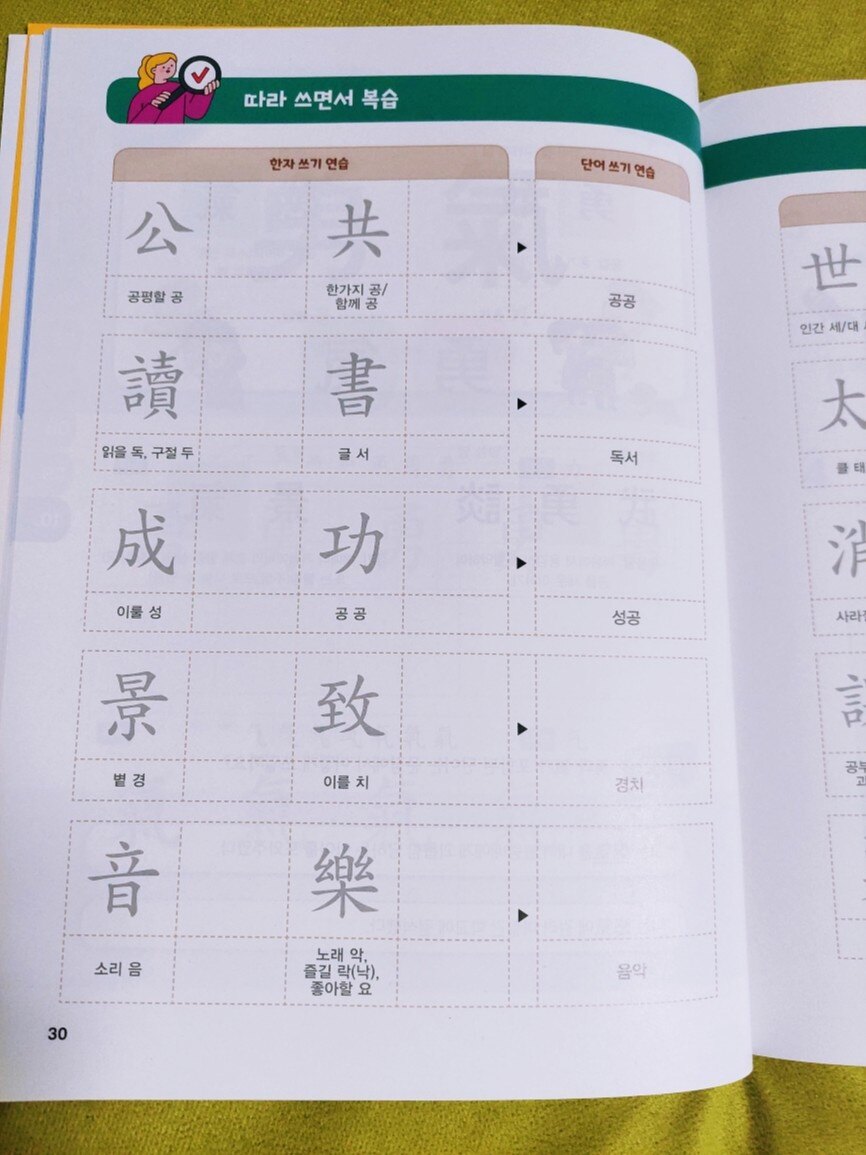 따라 쓰면서 복습
한자 쓰기 연습
단어 쓰기 연습
公 共
공평할 공
한가지 공/
함께 공
공공
讀 書
읽을 독, 구절 두
글 서
독서
成 功
이룰 성
공 공
성공
景 致
볕 경
이를 치
경치
音 樂
소리 음
노래 악,
즐길 락(낙),
좋아할 요
음악
30
世
인간 세/대
太
클 태
消
공부